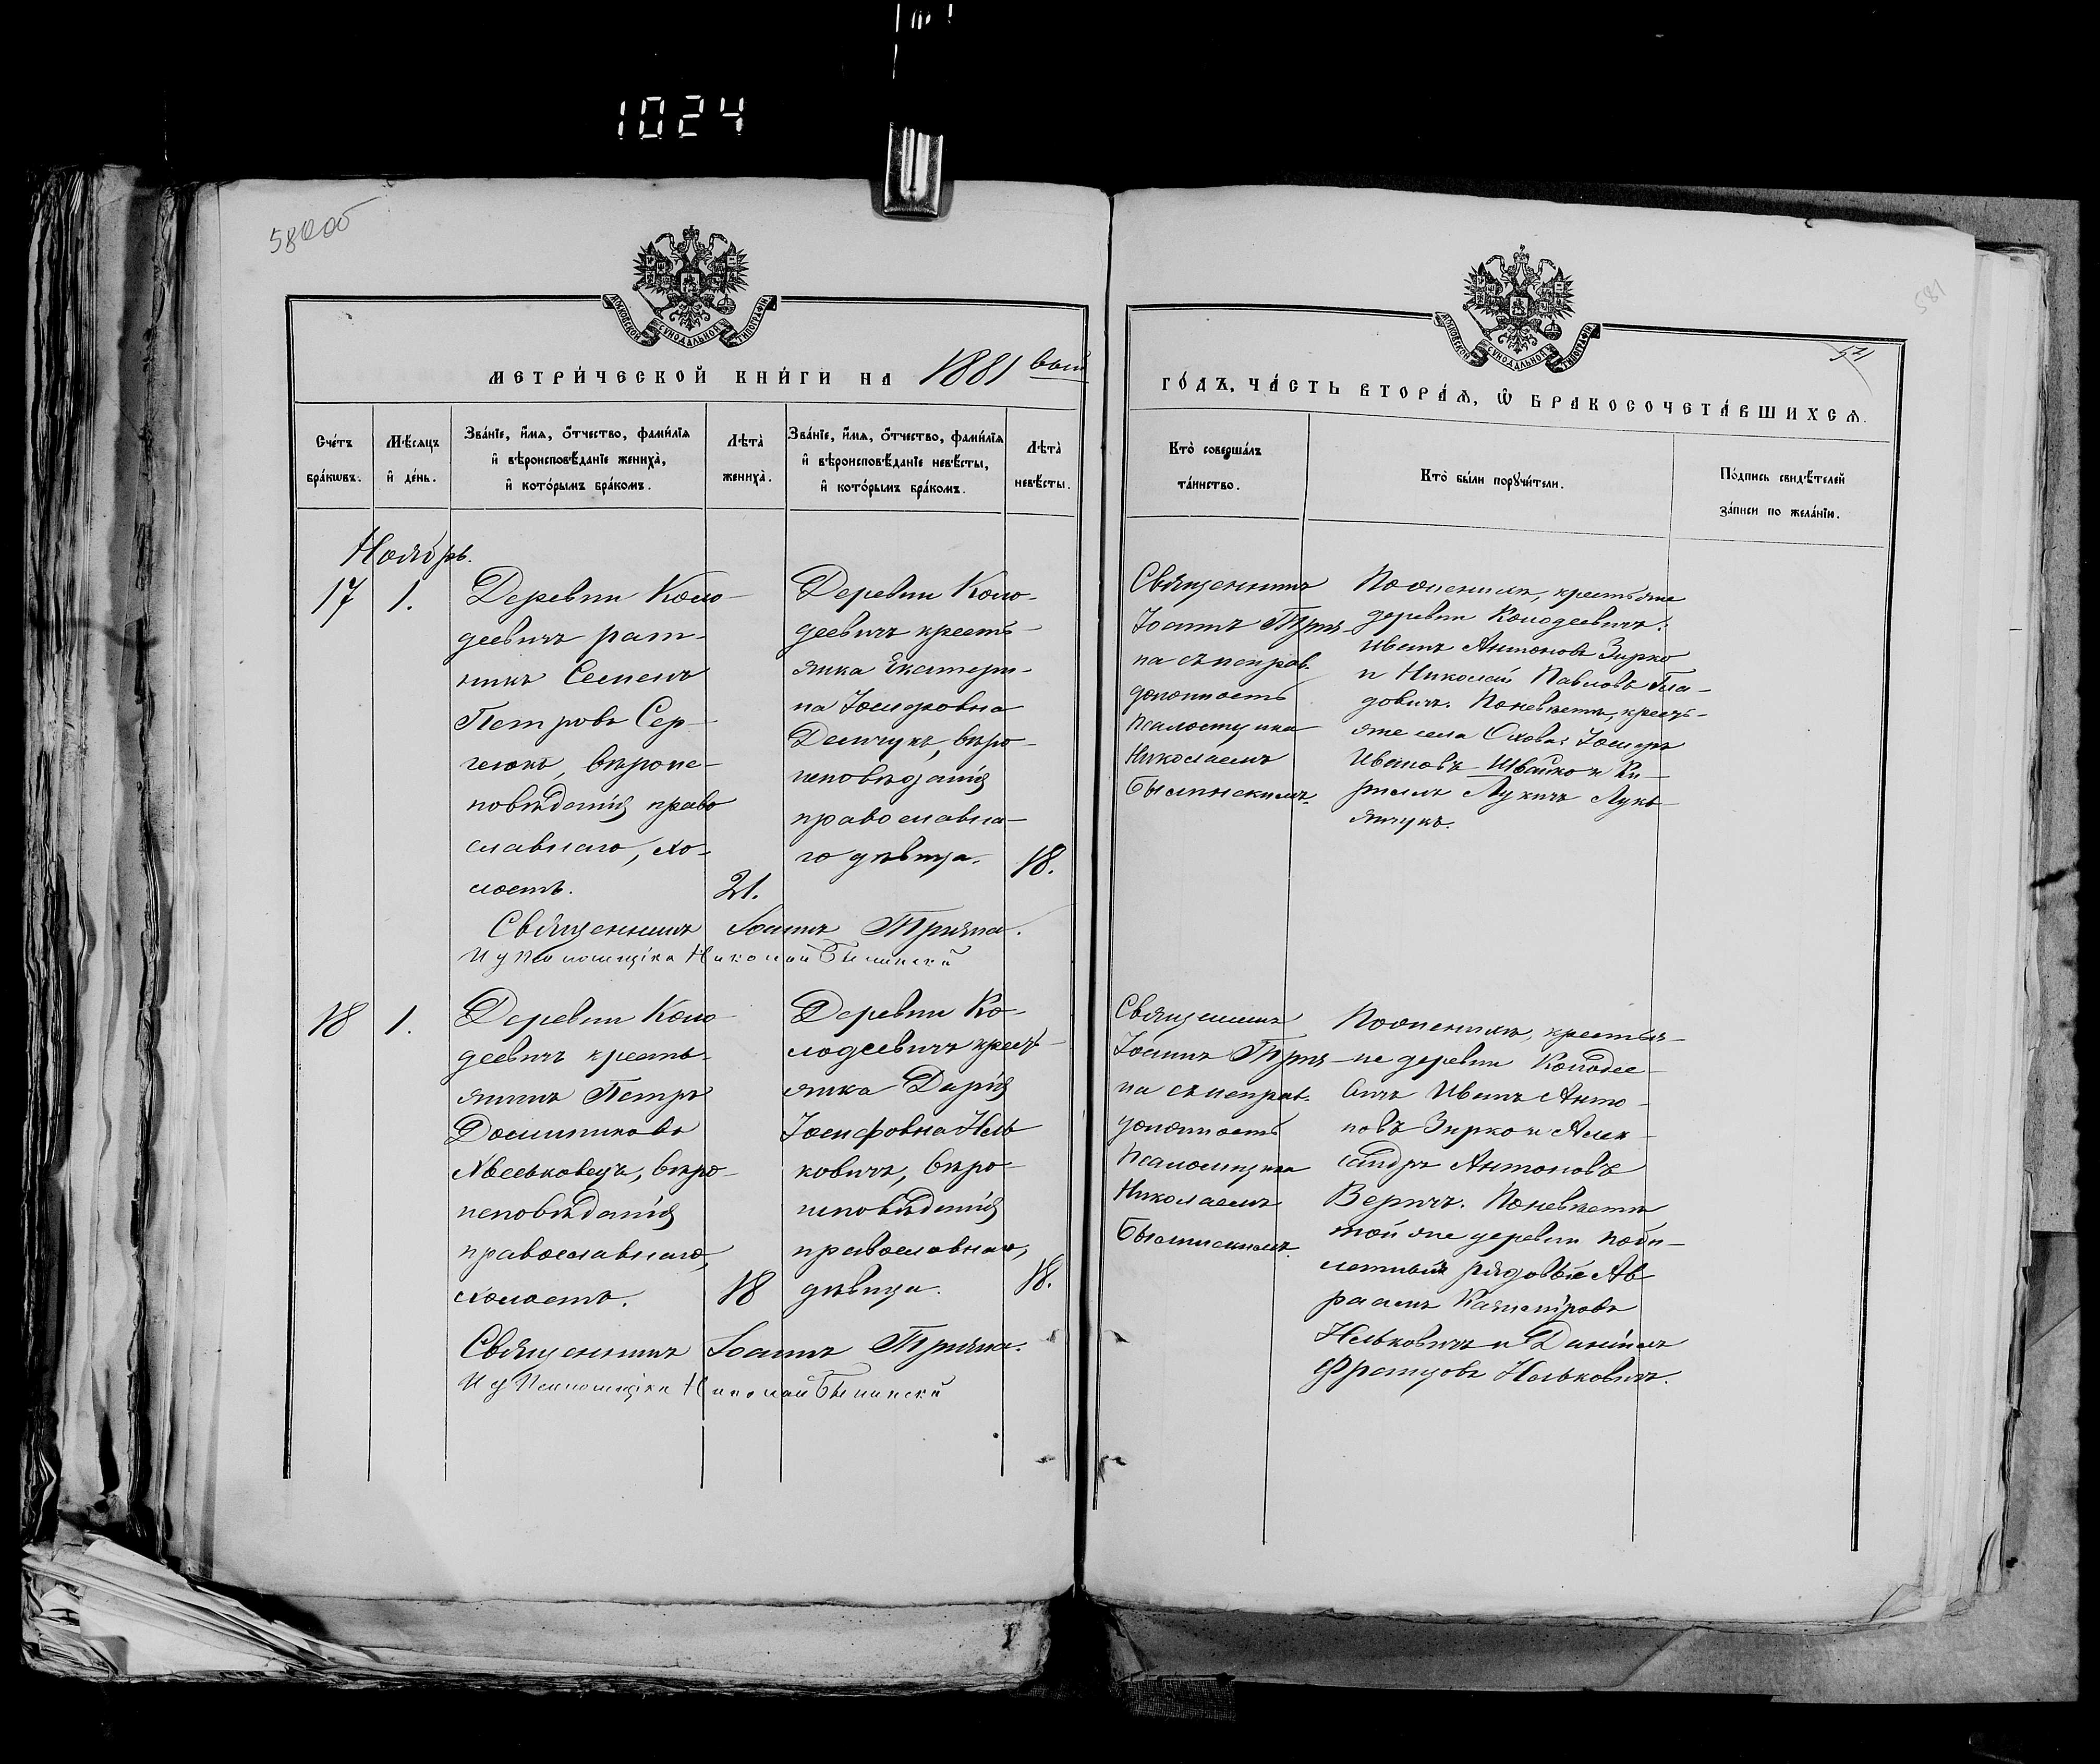 1024
580об
581
МОСКОВСКОЙ СѴНОДАЛЬНОЙ ТИПОГРАФІИ
МОСКОВСКОЙ СѴНОДАЛЬНОЙ ТИПОГРАФІИ
МЕТРИ́ЧЕСКОЙ КНИ́ГИ НА 1881 вый
ГО́ДЪ, ЧА́СТЬ ВТОРА́Ѧ, Ѽ БРАКОСОЧЕТА́ВШИХСѦ.
Сче́тъ
бра́кѡвъ.
Мѣ́сяцъ
и҆ де́нь.
Зва́нїе, и҆́мя, ѻ҆́тчество, фами́лїя
и҆ вѣроисповѣ́данїе жениха̀,
и҆ кото́рымъ бра́комъ.
Лѣта̀
жениха̀.
Зва́нїе, и҆́мя, ѻ҆́тчество, фами́лїя
и҆ вѣроисповѣ́данїе невѣ́сты,
и҆ кото́рымъ бра́комъ.
Лѣта̀
невѣ́сты.
Кто̀ соверша́лъ
та́инство.
Кто̀ бы́ли порꙋчи́тели.
По́дпись свидѣ́телей
за́писи по жела́нїю.
Ноябрь.
17
1.
Деревни Коло-
деевичъ рат-
никъ Семенъ
Петровъ Сер-
геюкъ, вѣроис-
повѣданія право
славнаго, хо-
лостъ.
21.
Деревни Коло-
деевичъ кресть-
янка Екатери-
на Іосифовна
Демчукъ, вѣро-
исповѣданія
православна-
го дѣвица.
18.
Священникъ
Іоаннъ Труя-
па съ исправ.
должность
псаломщика
Николаемъ
Былинскимъ.
По женихѣ, крестьяне
деревни Колодеевичъ:
Иванъ Антоновъ Зирко
и Николай Павловъ
По невѣстѣ, кресть-
яне села Охова: Іосифъ
Ивановъ Швайко и Ки-
риллъ Лукичъ Лукь-
янчукъ.
Священникъ Іоаннъ
И у Псаломщика Николай Былинскій
18
1.
Деревни Коло-
деевичъ кресть-
янинъ Петръ
Доминиковъ
вѣро-
исповѣданія
православнаго,
холостъ.
18
Деревни Ко-
лодеевичъ кресть-
янка Дарія
Іосифовна Нель
ковичъ, вѣро-
исповѣданія
православнаго,
дѣвица.
18.
Священникъ
Іоаннъ
па съ исправ.
должность
псаломщика
Николаемъ
Былинскимъ.
По женихѣ, крестья-
не деревни Колодее-
вичъ Иванъ Анто-
новъ Зирко и Алек-
сандръ Антоновъ
Веричъ. По невѣстѣ
той же деревни
рядовые Ав
раамъ Казиміровъ
Нельковичъ и Даніилъ
Францовъ Нельковичъ.
Священникъ Іоаннъ
И у Псаломщика Николай Былинскій